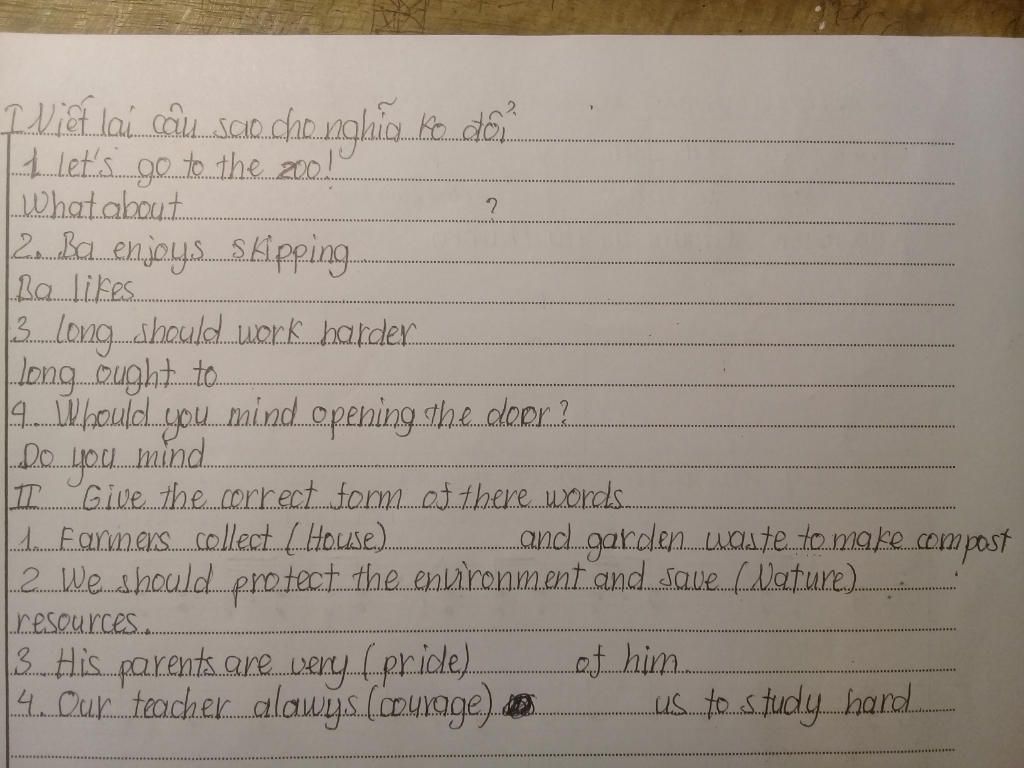 I Viết lại câu sao cho nghĩa ko đổi
1 let's go to the zoo!
What about ?
2. Ba enjoys skipping
Ba likes
3 long should work harder
long ought to
4. Whould you mind opening the door?
Do you mind
II Give the correct form of there words
1. Farmers collect (House) and garden waste to make compost
2 We should protect the environment and save (Nature)
resources.
3. His parents are very (pride) of him.
4. Our teacher alawys (courage) us to study hard